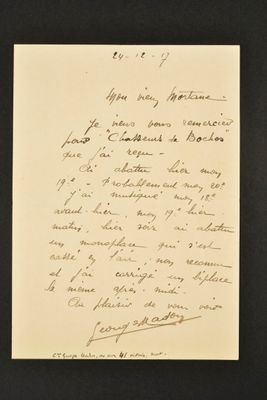 24-12-17
Mon vieux Mortane -
Je viens vous remercier
pour "Chasseurs de Boches"
que j'ai reçu -
Ai abattu hier mon
19e - Probablement mon 20e
J'ai mitraillé mon 18e
avant-hier, mon 19e hier
matin, hier soir ai abattu
un monoplace qui s'est
cassé en l'air, non reconnu
et j'ai corrigé un biplace
le même après-midi -
Au plaisir de vous voir
Georges Madon
Cne Georges Madon, as aux 41 victoires